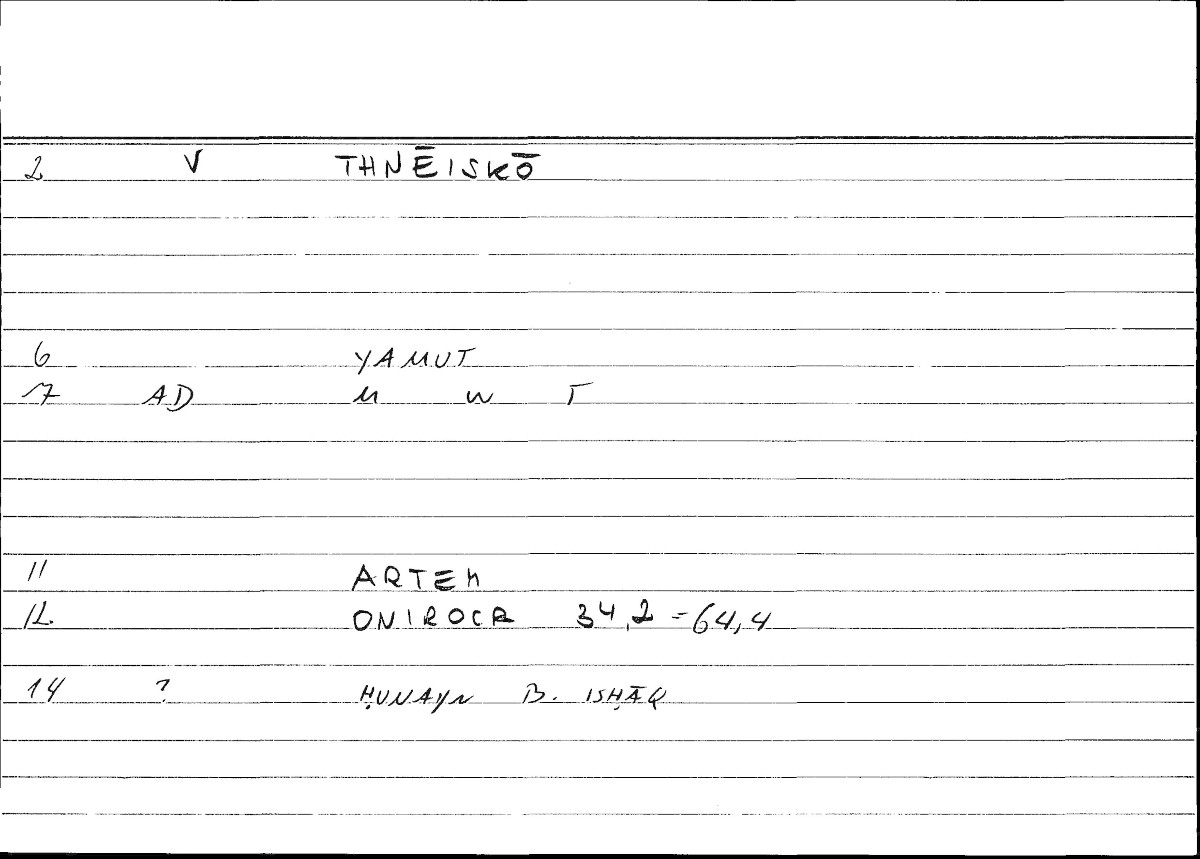 2 V THNĒISKŌ
6 YAMUT
7 AD M W T
11 ARTEM
12 ONIROCR 34,2 = 64,4
14 ? ḤUNAYN B. ISḤĀQ